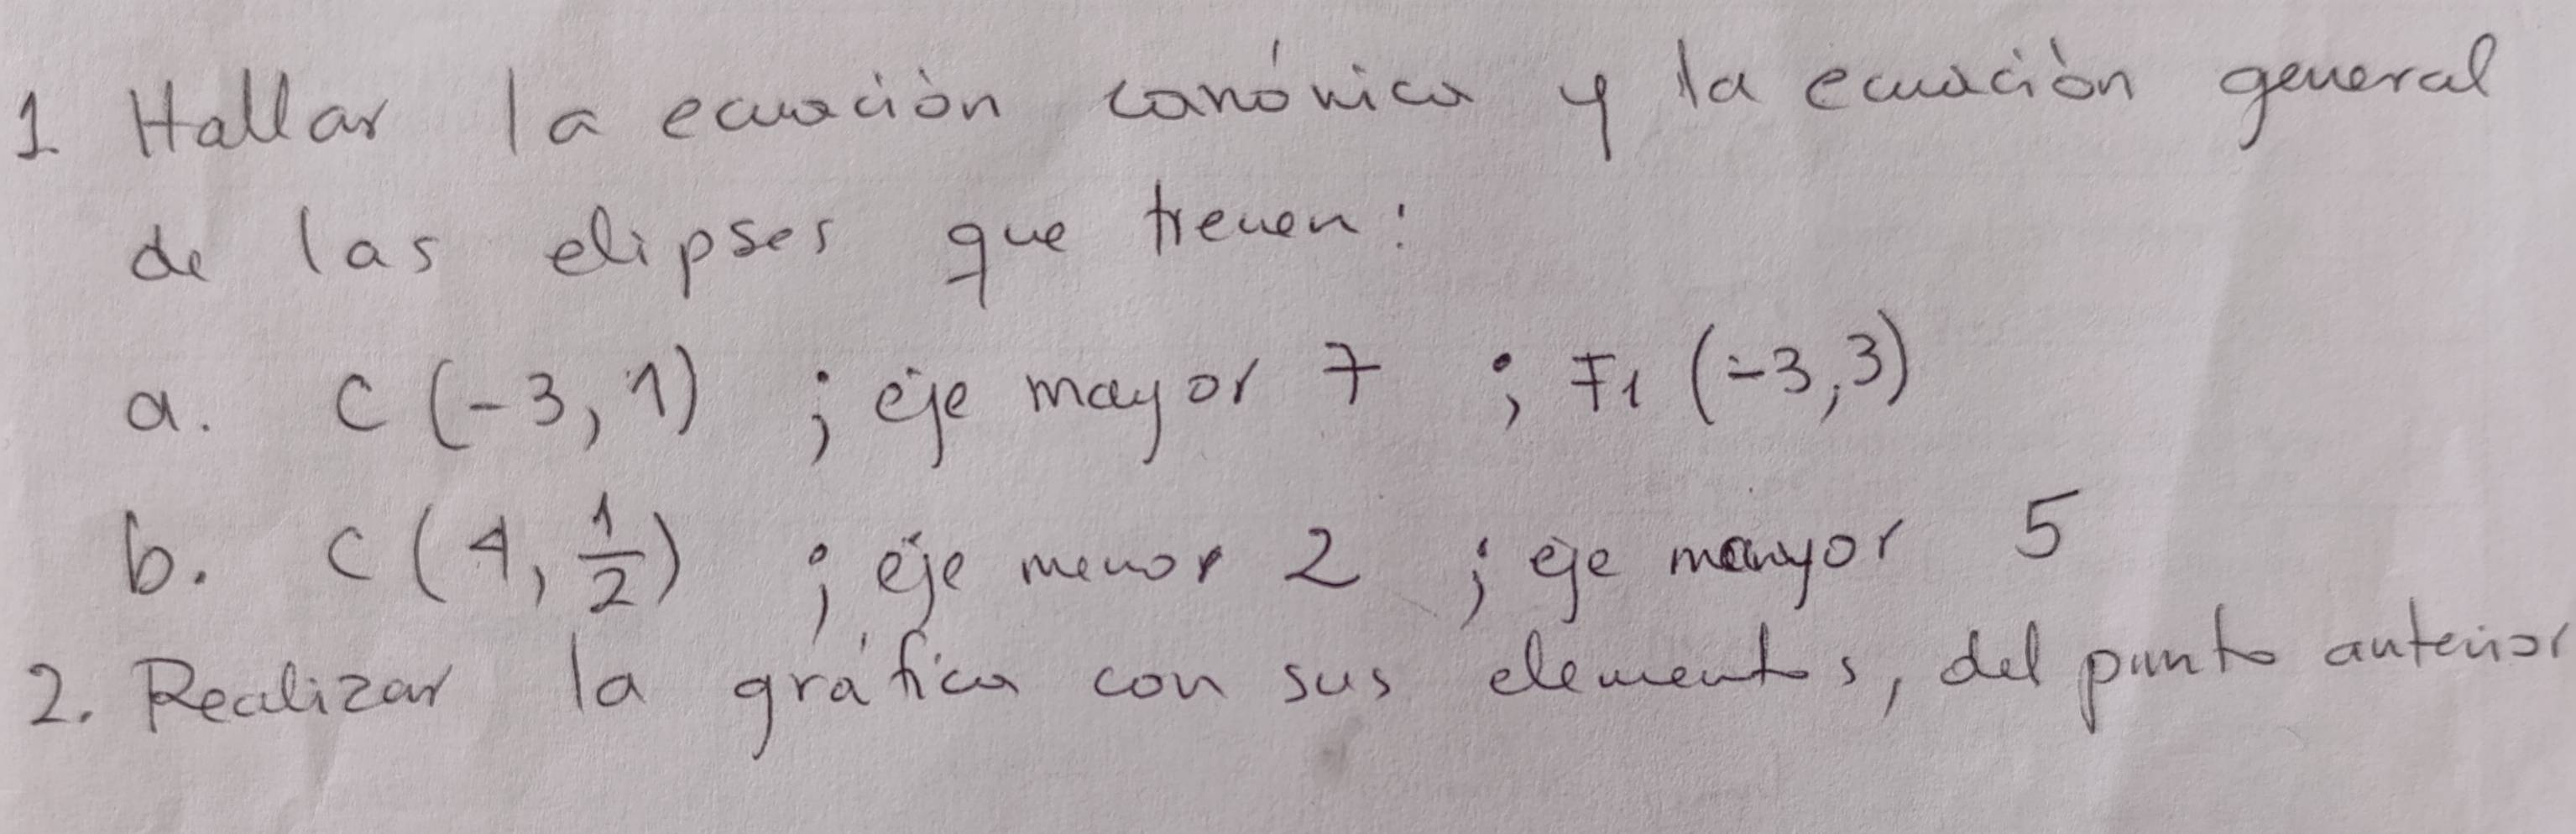 1 Hallar la ecuación canónica y la ecuación general
de las elipses que tienen:
a. C (-3, 1) ; eje mayor 7 ; F1 (-3,3)
b. C (4, 1/2) ; eje menor 2 ; eje mayor 5
2. Realizar la gráfica con sus elementos, del punto anterior